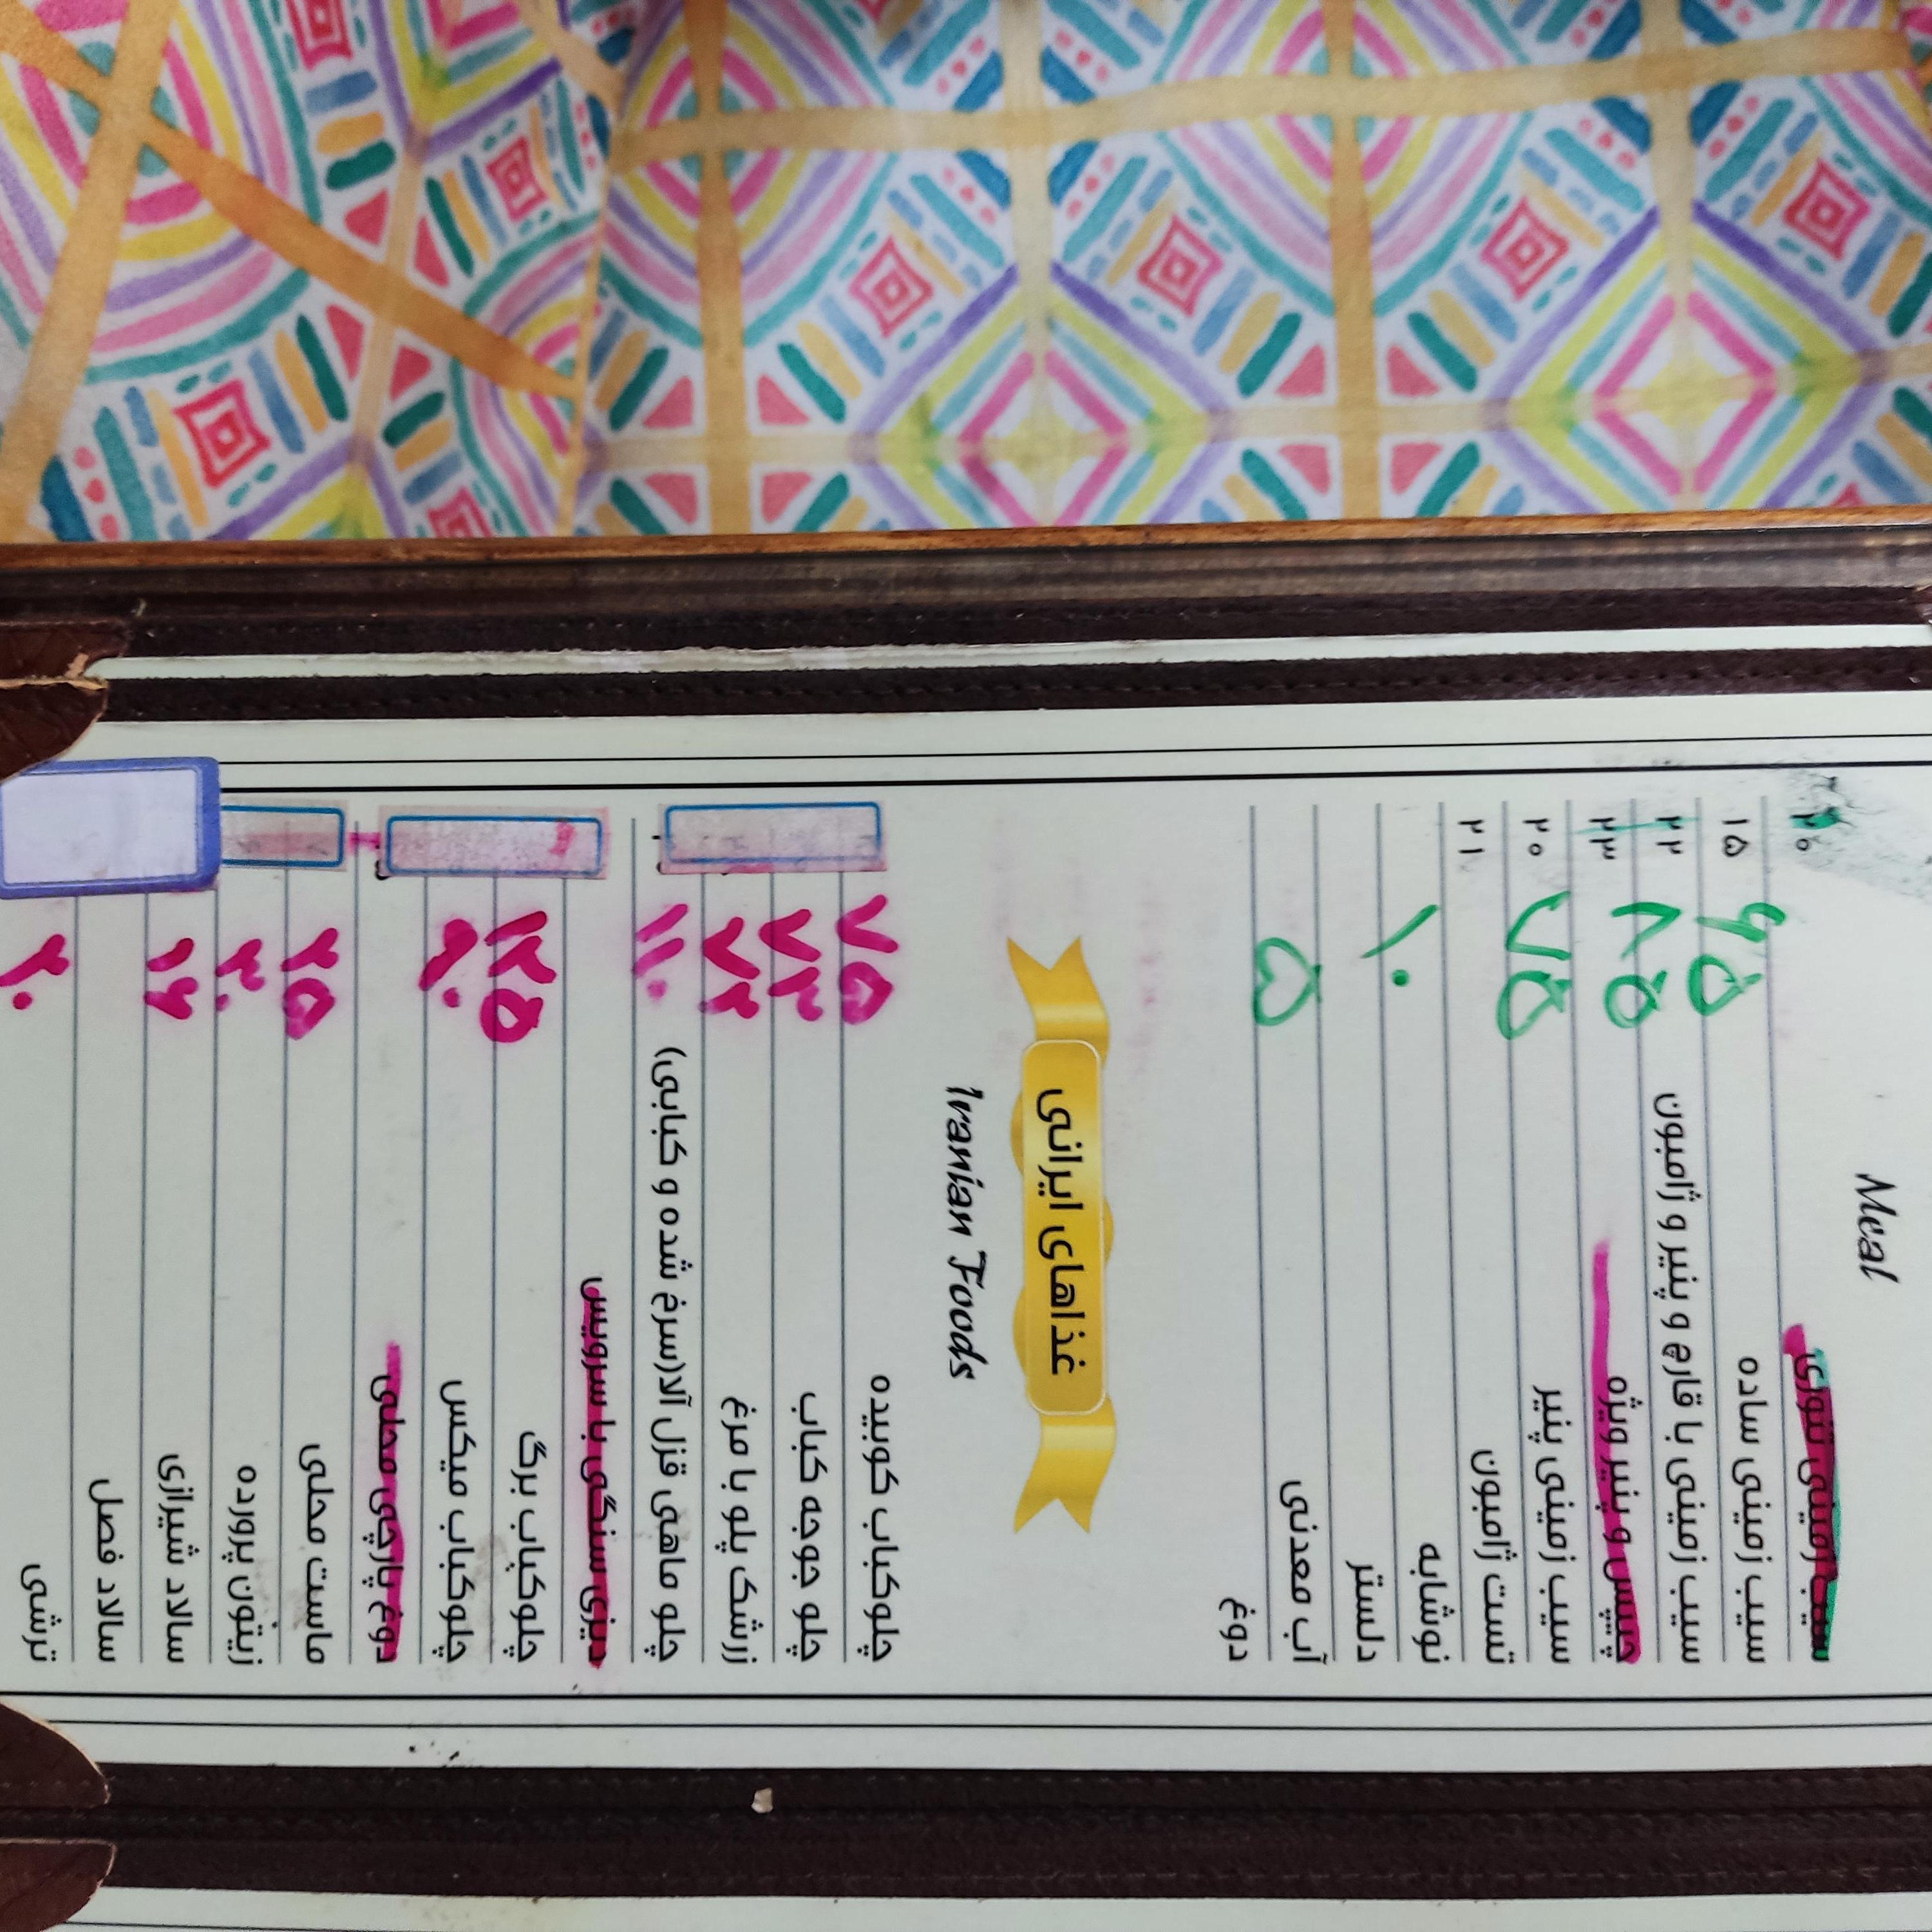 Meal
سیب زمینی تنوری ۲۰
سیب زمینی ساده ۶۵ ۱۵
سیب زمینی با قارچ و پنیر و ژامبون ۸۵ ۲۲
چیپس و پنیر ویژه ۲۳
سیب زمینی پنیر ۷۵ ۲۰
تست ژامبون ۲۱
نوشابه ۱۰
دلستر
آب معدنی ۵
دوغ
غذاهای ایرانی
Iranian Foods
چلوکباب کوبیده ۷۵
چلو جوجه کباب ۷۳
زرشک پلو با مرغ ۷۲
چلو ماهی قزل آلا(سرخ شده و کبابی) ۱۱۰
دیزی سنگی با سرویس
چلوکباب برگ ۱۲۵
چلوکباب میکس ۹۰
دوغ پارچی محلی
ماست محلی ۲۵
زیتون پرورده ۳۰
سالاد شیرازی ۱۶
سالاد فصل
ترشی ۲۰